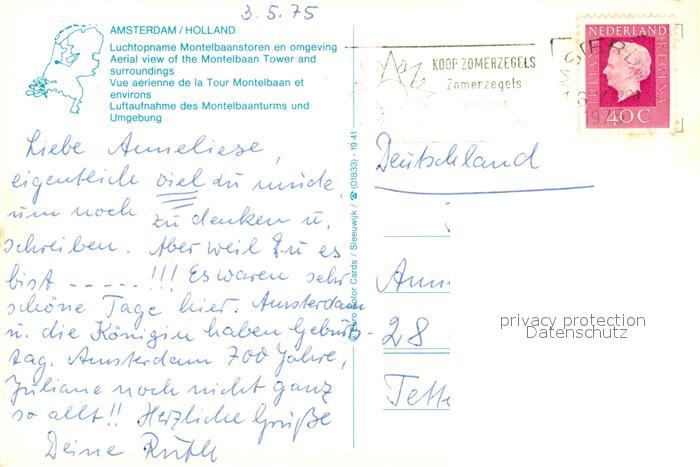 3.5.75
AMSTERDAM / HOLLAND
Luchtopname Montelbaanstoren en omgeving
Aerial view of the Montelbaan Tower and
surroundings
Vue aérienne de la Tour Montelbaan et
environs
Luftaufnahme des Montelbaanturms und
Umgebung
Liebe Anneliese,
eigentlich viel zu müde,
um noch zu denken u.
schreiben. Aber weil Du es
bist - - - - - !!! Es waren sehr
schöne Tage hier. Amsterdam
u. die Königin haben Geburts-
tag. Amsterdam 700 Jahre,
Juliane noch nicht ganz
so allt!! Herzliche Grüße
Deine Ruth
Euro Color Cards / Sleeuwijk / ☎ (01833) - 19 41
KOOP ZOMERZEGELS
Zomerzegels
AMSTERDAM
NEDERLAND
JULIANA
REGINA
40 C
Deutschland
Ann
28
Tette
privacy protection
Datenschutz